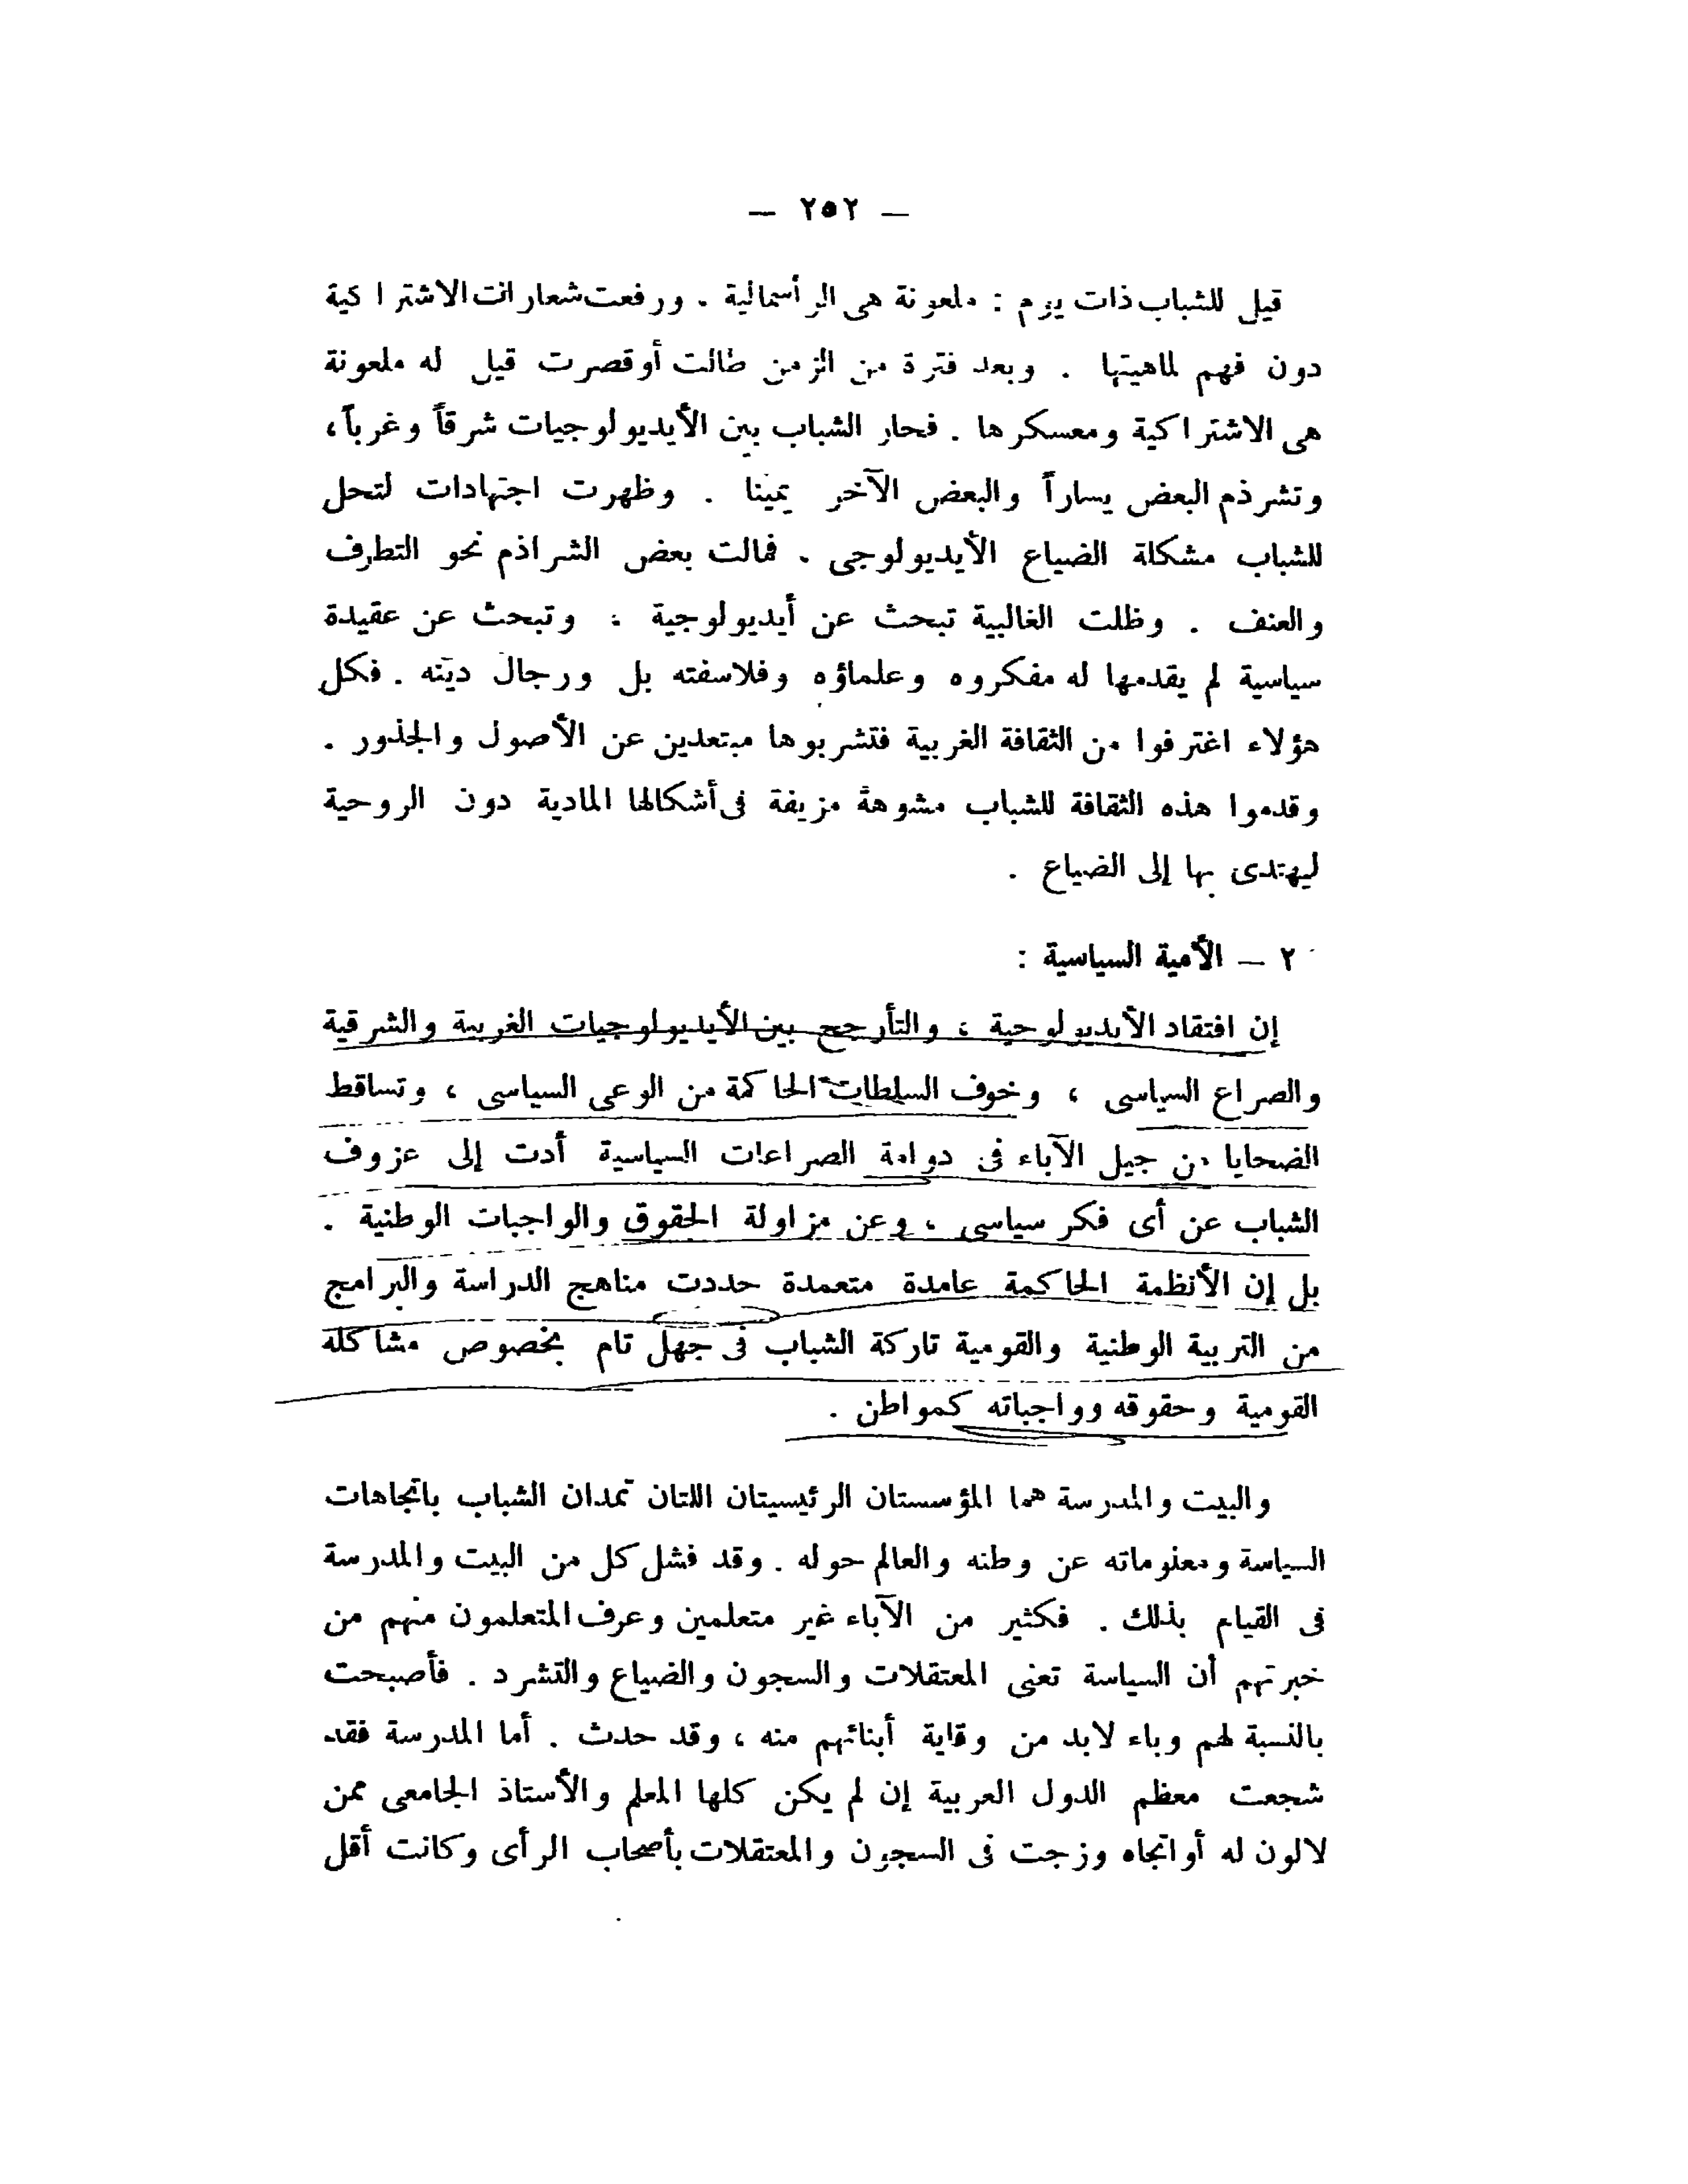 — ٢٥٢ —
قيل للشباب ذات يوم : ملعونة هى الرأسمالية . ورفعت شعارات الاشتراكية
دون فهم لماهيتها . وبعد فترة من الزمن طالت أو قصرت قيل له ملعونة
هى الاشتراكية ومعسكرها . فحار الشباب بين الأيديولوجيات شرقاً وغرباً ،
وتشرذم البعض يساراً والبعض الآخر يمينا . وظهرت اجتهادات لتحل
للشباب مشكلة الضياع الأيديولوجى . فمالت بعض الشراذم نحو التطرف
والعنف . وظلت الغالبية تبحث عن أيديولوجية ؛ وتبحث عن عقيدة
سياسية لم يقدمها له مفكروه وعلماؤه وفلاسفته بل ورجال دينه . فكل
هؤلاء اغترفوا من الثقافة الغربية فتشربوها مبتعدين عن الأصول والجذور .
وقدموا هذه الثقافة للشباب مشوهة مزيفة فى أشكالها المادية دون الروحية
ليهتدى بها إلى الضياع .
٢ — الأمية السياسية :
إن افتقاد الأيديولوجية ، والتأرجح بين الأيديولوجيات الغربية والشرقية
والصراع السياسى ، وخوف السلطات الحاكمة من الوعى السياسى ، وتساقط
الضحايا من جيل الآباء فى دوامة الصراعات السياسية أدت إلى عزوف
الشباب عن أى فكر سياسى ، وعن مزاولة الحقوق والواجبات الوطنية .
بل إن الأنظمة الحاكمة عامدة متعمدة حددت مناهج الدراسة والبرامج
من التربية الوطنية والقومية تاركة الشباب فى جهل تام بخصوص مشاكله
القومية وحقوقه وواجباته كمواطن .
والبيت والمدرسة هما المؤسستان الرئيسيتان اللتان تمدان الشباب باتجاهات
السياسة ومعلوماته عن وطنه والعالم حوله . وقد فشل كل من البيت والمدرسة
فى القيام بذلك . فكثير من الآباء غير متعلمين وعرف المتعلمون منهم من
خبرتهم أن السياسة تعنى المعتقلات والسجون والضياع والتشرد . فأصبحت
بالنسبة لهم وباء لابد من وقاية أبنائهم منه ، وقد حدث . أما المدرسة فقد
شجعت معظم الدول العربية إن لم يكن كلها المعلم والأستاذ الجامعى ممن
لالون له أو اتجاه وزجت فى السجون والمعتقلات بأصحاب الرأى وكانت أقل